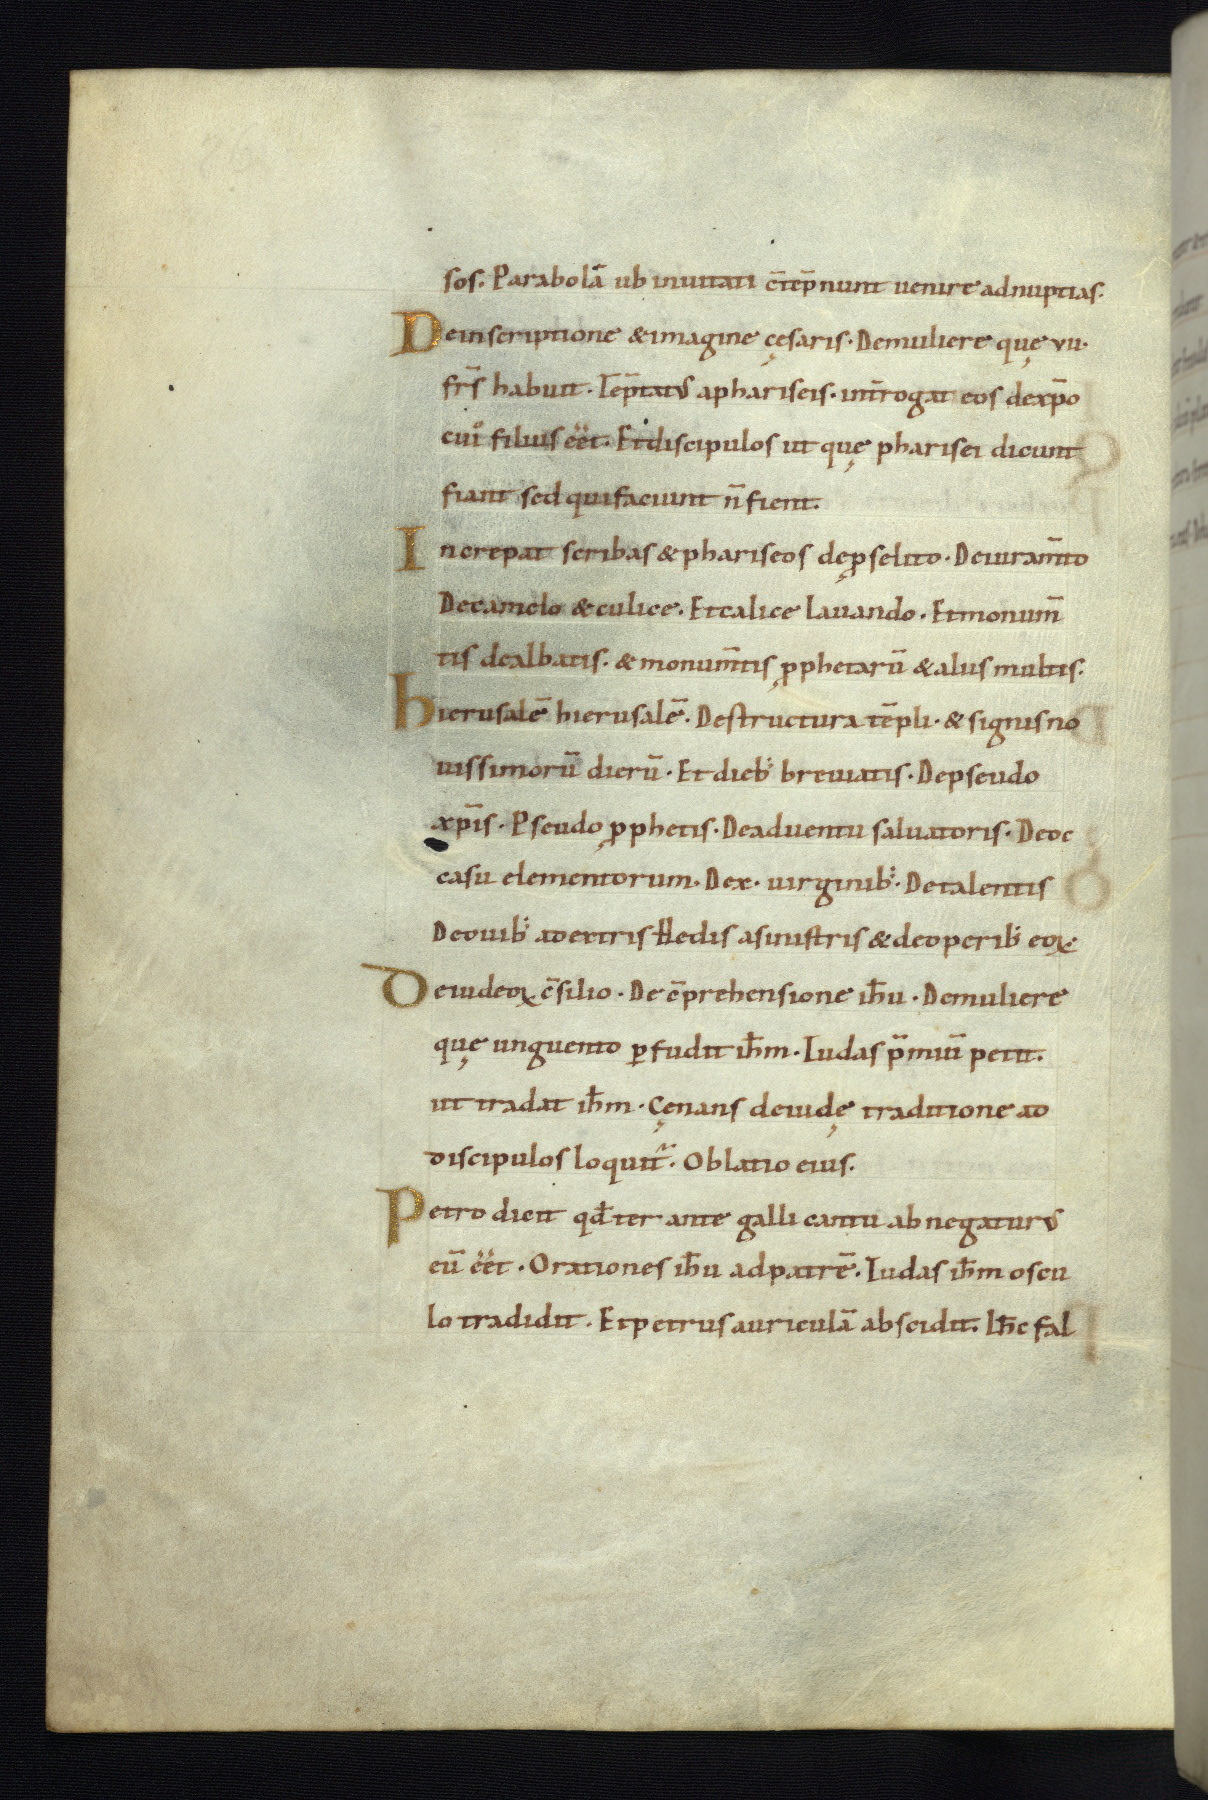 sos. Parabolā ub inuitati c̄tēpnunt uenire adnuptias.
Deinscriptione &imagine çesaris. Demuliere quę vii.
fr̄s habuit. Tēptatus aphariseis. int̄rogat eos dexp̄o
cui filius eēt. Etdiscipulos ut quę pharisei dicunt
fiant sed quifaciunt n̄ fient.
Increpat scribas &phariseos deꝓselito. Deiuram̄to
Decamelo &culice. Etcalice lauando. Etmonum̄
tis dealbatis. &monum̄tis ꝓphetarū &aliis multis.
hierusalē hierusalē. Destructura tēpli. & signis no
uissimorū dierū. Et dieb; breuiatis. Depseudo
xp̄is. Pseudo ꝓphetis. Deaduentu saluatoris. Deoc
casu elementorum. Dex. uirginib;. Detalentis
Deouib; adextris Hedis asinistris &deoperib; eoꝝ.
Deiudeoꝝ c̄silio. De c̄prehensione ih̄u. Demuliere
quę unguento ꝑfudit ih̄m. Iudas p̄miū petit.
ut tradat ih̄m. Cęnans deiudę traditione ad
discipulos loquit᷑. Oblatio eius.
Petro dicit qđ ter ante galli cantu abnegaturus
eū eēt. Orationes ih̄u adpatrē. Iudas ih̄m oscu
lo tradidit. Etpetrus auriculā abscidit. Ih̄c fal